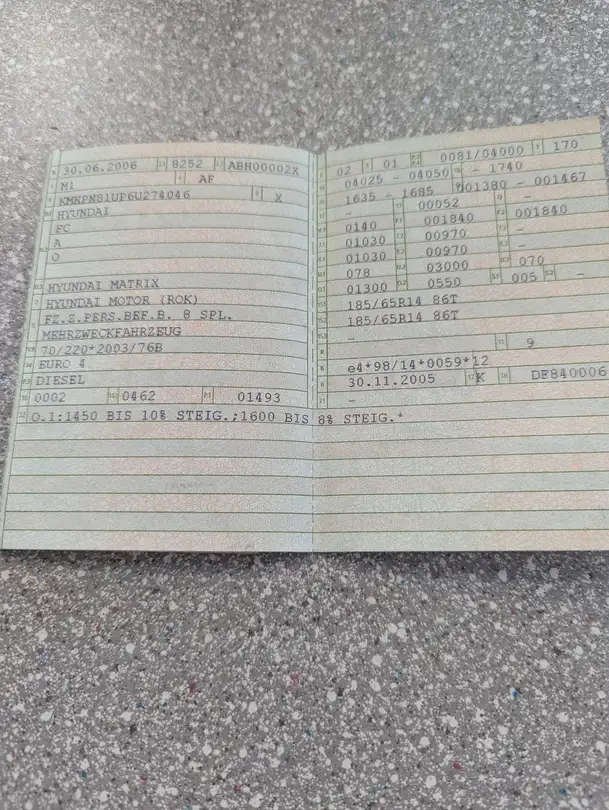 30.06.2006 8252 ABH00002X
M1 AF
KMHPN81UP6U274046 X
HYUNDAI
FC
A
0
HYUNDAI MATRIX
HYUNDAI MOTOR (ROK)
FZ.Z.PERS.BEF.B. 8 SPL.
MEHRZWECKFAHRZEUG
70/220*2003/76B
EURO 4
DIESEL
0002 0462 01493
02 01 0081/04000 170
04025 - 04050 - 1740
1635 - 1685 001380 - 001467
- 00052 -
0140 001840 001840
01030 00970
01030 00970
078 03000 070
01300 0550 005 -
185/65R14 86T
185/65R14 86T
-
9
e4*98/14*0059*12
30.11.2005 K DF840006
-
O.1:1450 BIS 10% STEIG.;1600 BIS 8% STEIG.*